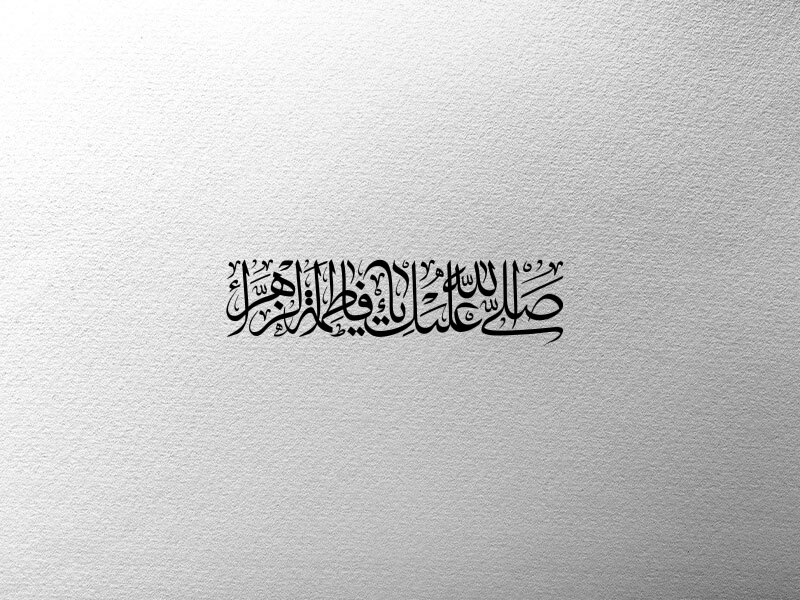 صَلَّی اللهُ عَلَیْكِ یا فاطِمَةُ الزَّهْراءُ